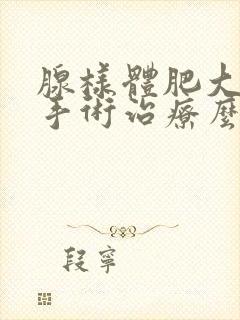 腺樣體肥大
手術治療麼
段寧